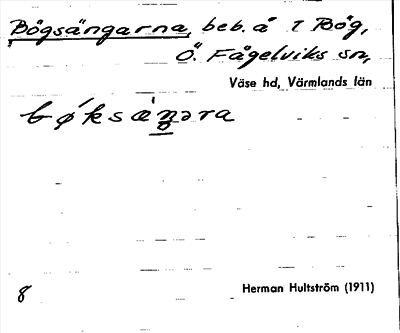 Bögsängarna, beb. å 1 Bög,
Ö. Fågelviks sn,
Väse hd, Värmlands län
bøksæŋəra
8
Herman Hultström (1911)